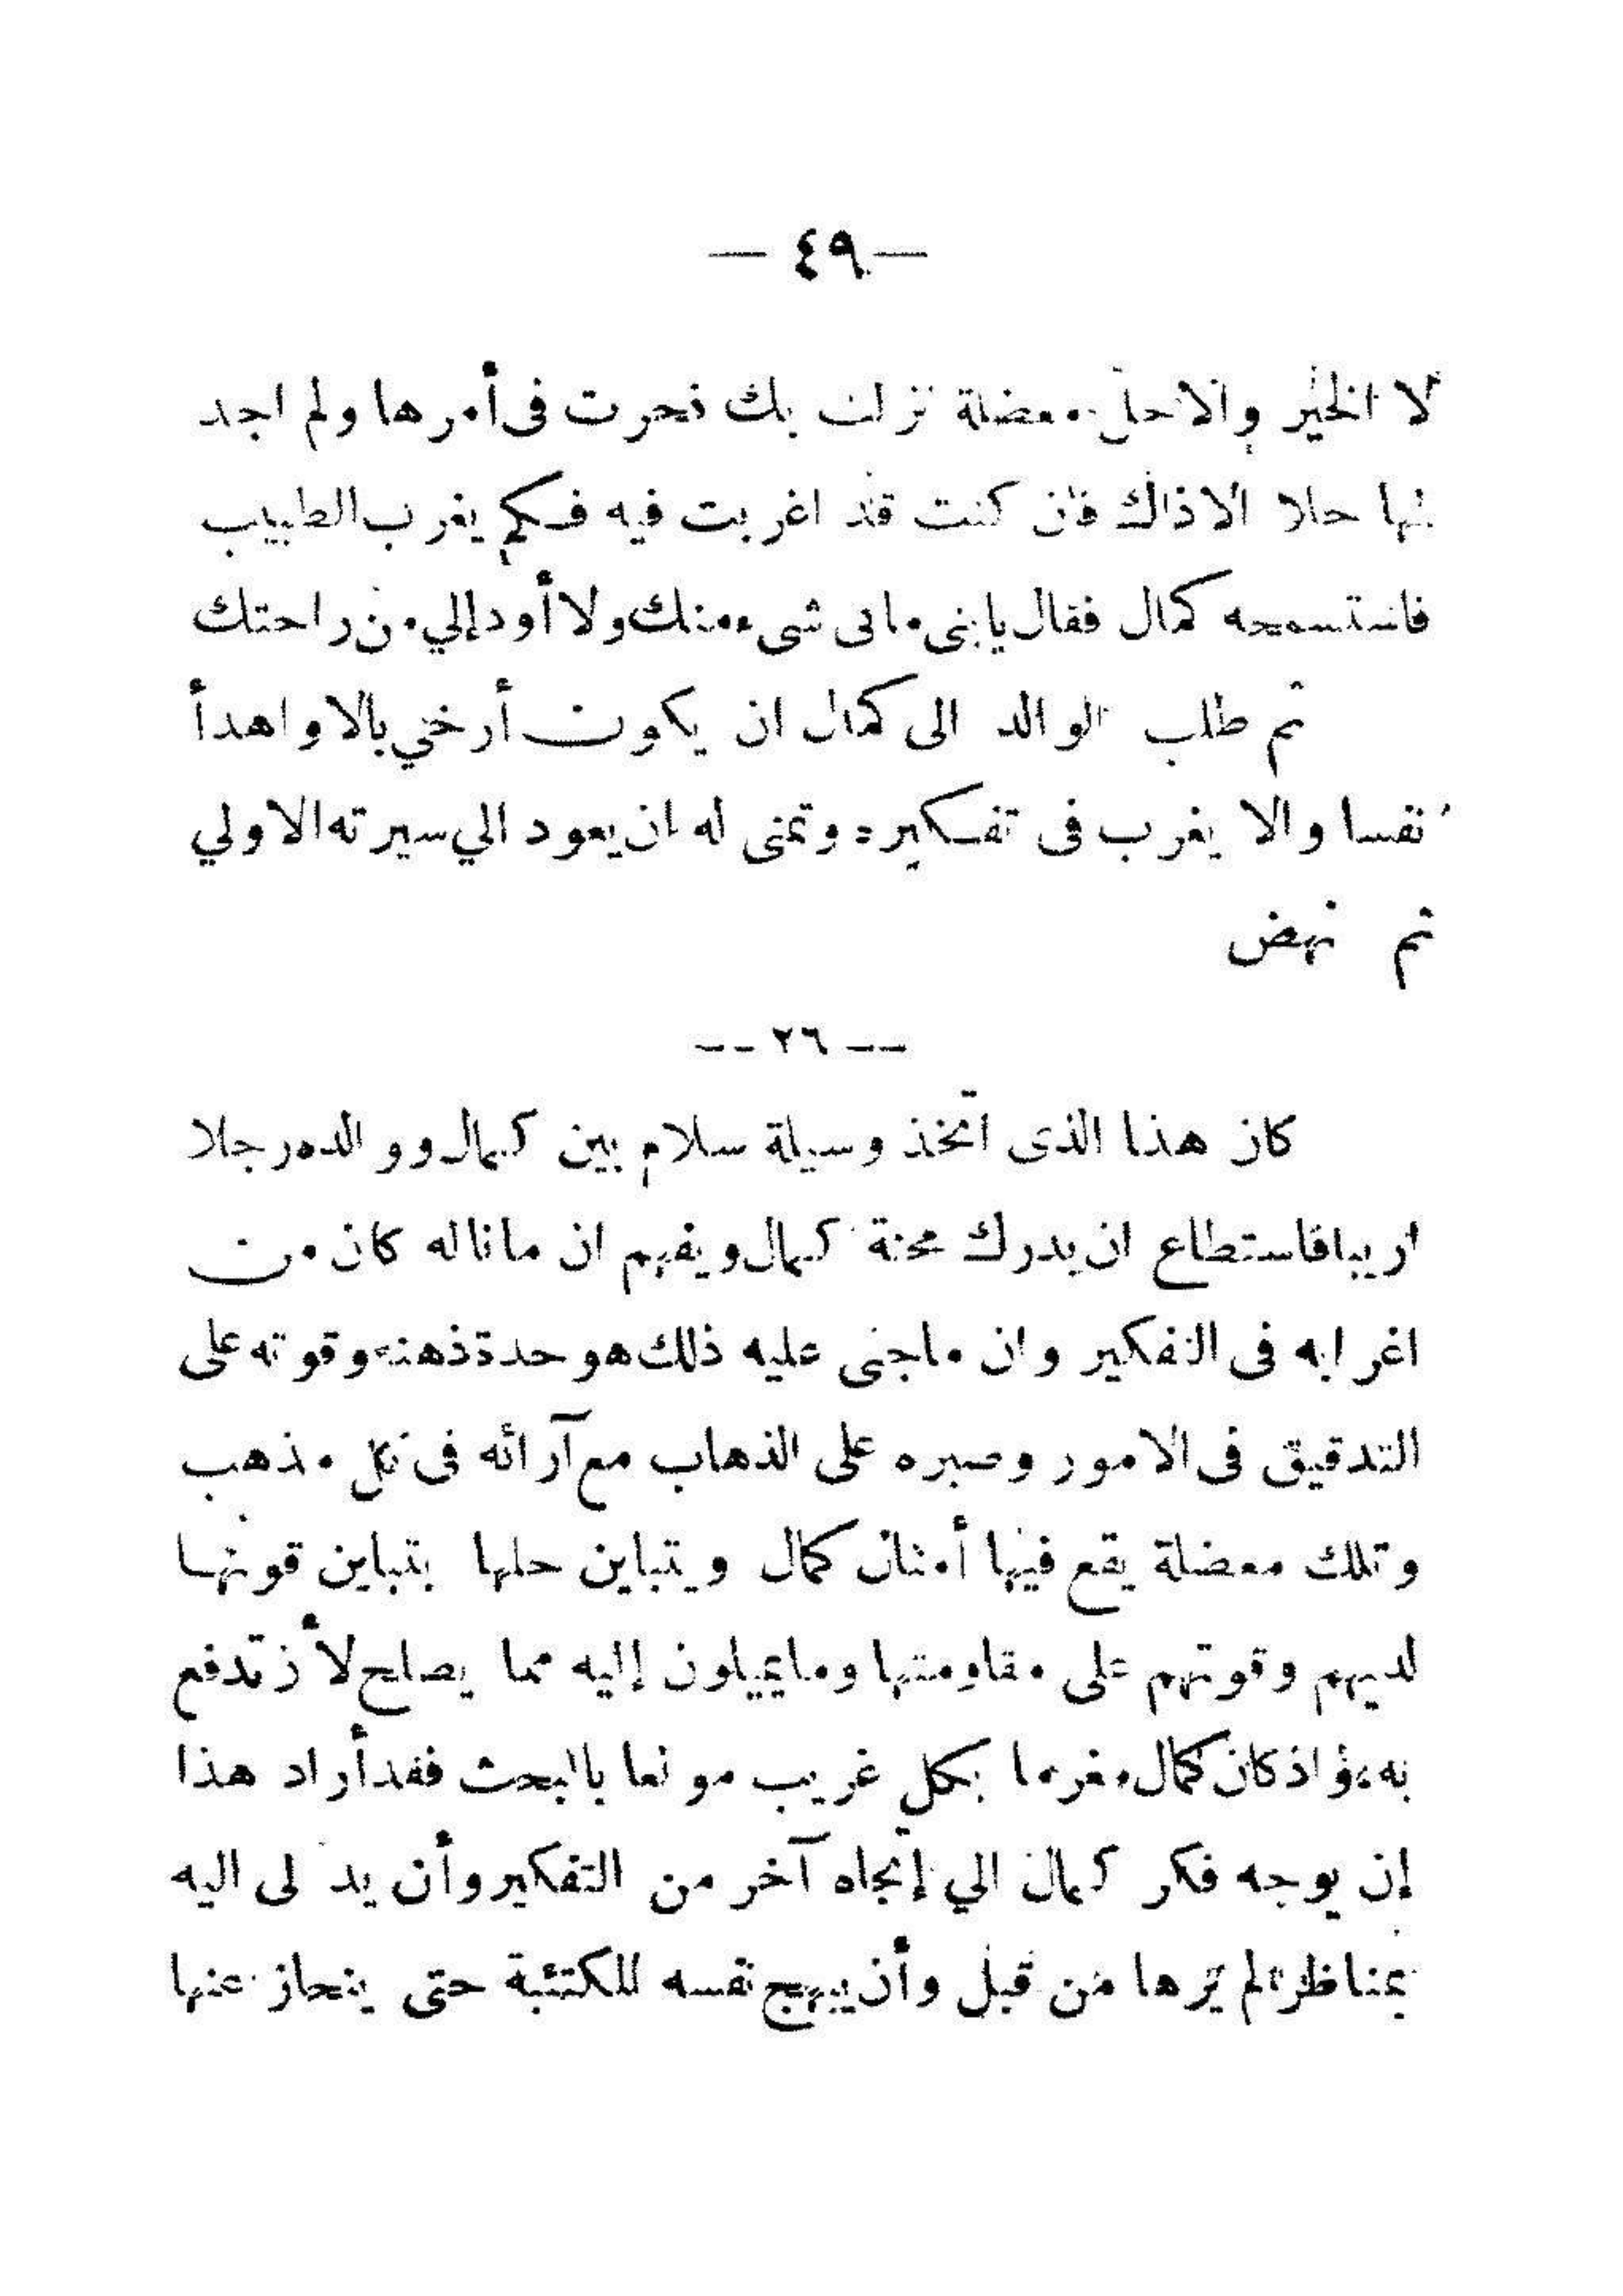 — ٤٩ —
لا الخير والاحل معضلة نزلت بك فحرت فى أمرها ولم اجد
لها حلا الا ذاك فان كنت قد اغربت فيه فكم يغرب الطبيب
فاستسمحه كمال فقال يابنى مابى شىء منك ولا أود إلي من راحتك
ثم طلب الوالد الى كمال ان يكون أرخي بالا واهدأ
نفسا والا يغرب فى تفكيره وتمنى له ان يعود الي سيرته الاولي
ثم نهض
-- ٢٦ --
كان هذا الذى اتخذ وسيلة سلام بين كمال ووالده رجلا
اريبا فاستطاع ان يدرك محنة كمال ويفهم ان ماناله كان من
اغرابه فى التفكير وان ماجنى عليه ذلك هو حدة ذهنه وقوته على
التدقيق فى الامور وصبره على الذهاب مع آرائه فى كل مذهب
وتلك معضلة يقع فيها أمثال كمال ويتباين حلها بتباين قوتها
لديهم وقوتهم على مقاومتها ومايميلون إليه مما يصلح لأن تدفع
به، واذ كان كمال مغرما بكل غريب مولعا بالبحث فقد أراد هذا
إن يوجه فكر كمال الي إتجاه آخر من التفكير وأن يدلى اليه
بمناظر لم يرها من قبل وأن يبهج نفسه المكتئبة حتى ينحاز عنها